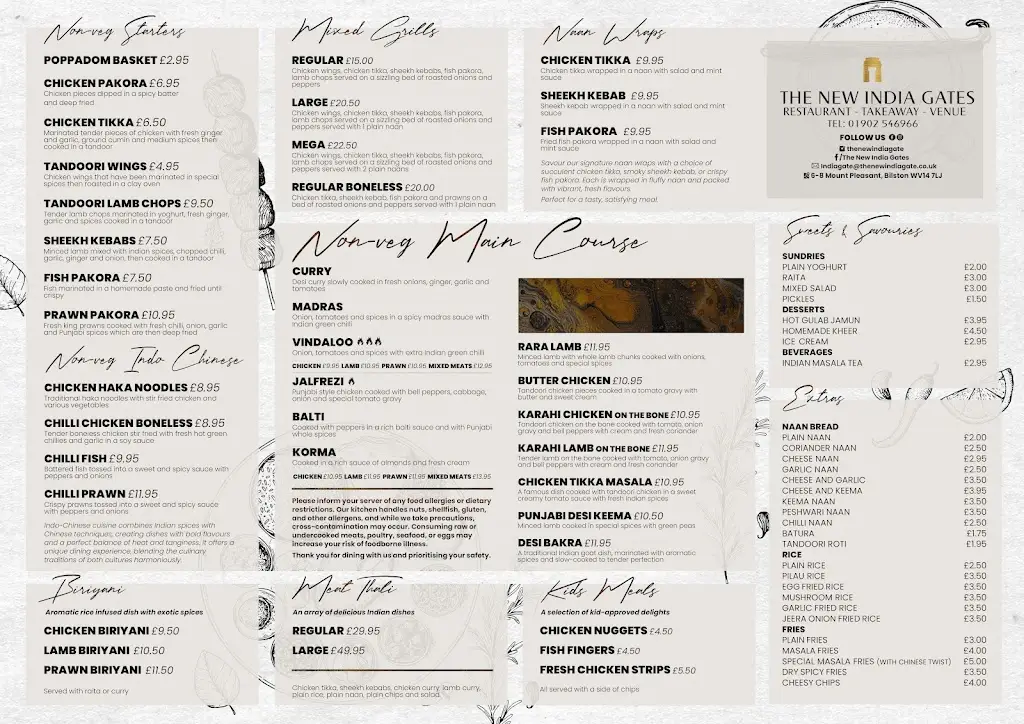 Non-veg Starters
POPPADOM BASKET £2.95
CHICKEN PAKORA £6.95
Chicken pieces dipped in a spicy batter
and deep fried
CHICKEN TIKKA £6.50
Marinated tender pieces of chicken with fresh ginger
and garlic, ground cumin and medium spices then
cooked in a tandoor
TANDOORI WINGS £4.95
Chicken wings that have been marinated in special
spices then roasted in a clay oven
TANDOORI LAMB CHOPS £9.50
Tender lamb chops marinated in yoghurt, fresh ginger,
garlic and spices cooked in a tandoor
SHEEKH KEBABS £7.50
Minced lamb mixed with indian spices, chopped chilli,
garlic, ginger and onion, then cooked in a tandoor
FISH PAKORA £7.50
Fish marinated in a homemade paste and fried until
crispy
PRAWN PAKORA £10.95
Fresh king prawns cooked with fresh chilli, onion, garlic
and Punjabi spices which are then deep fried
Non-veg Indo Chinese
CHICKEN HAKA NOODLES £8.95
Traditional haka noodles with stir fried chicken and
various vegetables
CHILLI CHICKEN BONELESS £8.95
Tender boneless chicken stir fried with fresh hot green
chillies and garlic in a soy sauce
CHILLI FISH £9.95
Battered fish tossed into a sweet and spicy sauce with
peppers and onions
CHILLI PRAWN £11.95
Crispy prawns tossed into a sweet and spicy sauce
with peppers and onions
Indo-Chinese cuisine combines Indian spices with
Chinese techniques, creating dishes with bold flavours
and a perfect balance of heat and tanginess. It offers a
unique dining experience, blending the culinary
traditions of both cultures harmoniously.
Biriyani
Aromatic rice infused dish with exotic spices
CHICKEN BIRIYANI £9.50
LAMB BIRIYANI £10.50
PRAWN BIRIYANI £11.50
Served with raita or curry
Mixed Grills
REGULAR £15.00
Chicken wings, chicken tikka, sheekh kebabs, fish pakora,
lamb chops served on a sizzling bed of roasted onions and
peppers
LARGE £20.50
Chicken wings, chicken tikka, sheekh kebabs, fish pakora,
lamb chops served on a sizzling bed of roasted onions and
peppers served with 1 plain naan
MEGA £22.50
Chicken wings, chicken tikka, sheekh kebabs, fish pakora,
lamb chops served on a sizzling bed of roasted onions and
peppers served with 2 plain naans
REGULAR BONELESS £20.00
Chicken tikka, sheekh kebabs, fish pakora and prawns on a
bed of roasted onions and peppers served with 1 plain naan
Naan Wraps
CHICKEN TIKKA £9.95
Chicken tikka wrapped in a naan with salad and mint
sauce
SHEEKH KEBAB £9.95
Sheekh kebab wrapped in a naan with salad and mint
sauce
FISH PAKORA £9.95
Fish pakora wrapped in a naan with salad and
mint sauce
Savour our signature naan wraps with a choice of
succulent chicken tikka, smoky sheekh kebab, or crispy
fish pakora. Each is wrapped in fluffy naan and packed
with vibrant, fresh flavours.
Perfect for a tasty, satisfying meal
Non-veg Main Course
CURRY
Desi curry slowly cooked in fresh onions, ginger, garlic and
tomatoes
MADRAS
Onion, tomatoes and spices in a spicy madras sauce with
Indian green chilli
VINDALOO
Onion, tomatoes and spices with extra Indian green chilli
CHICKEN £9.95 LAMB £10.95 PRAWN £10.95 MIXED MEATS £12.95
JALFREZI
Punjabi style chicken cooked with bell peppers, cabbage,
onion and special tomato gravy
BALTI
Cooked with peppers in a rich balti sauce and with Punjabi
whole spices
KORMA
Cooked in a rich sauce of almonds and fresh cream
CHICKEN £10.95 LAMB £11.95 PRAWN £11.95 MIXED MEATS £13.95
Please inform your server of any food allergies or dietary
restrictions. Our kitchen handles nuts, shellfish, gluten,
and other allergens, and while we take precautions,
cross-contamination may occur. Consuming raw or
undercooked meats, poultry, seafood, or eggs may
increase your risk of foodborne illness.
Thank you for dining with us and prioritising your safety.
RARA LAMB £11.95
Minced lamb with whole lamb chunks cooked with onions,
tomatoes and special spices
BUTTER CHICKEN £10.95
Tandoori chicken pieces cooked in a tomato gravy with
butter and sweet cream
KARAHI CHICKEN ON THE BONE £10.95
Tandoori chicken on the bone cooked with tomato, onion
gravy and bell peppers with cream and fresh coriander
KARAHI LAMB ON THE BONE £11.95
Tender lamb on the bone cooked with tomato, onion gravy
and bell peppers with cream and fresh coriander
CHICKEN TIKKA MASALA £10.95
A famous dish cooked with tandoori chicken in a sweet
creamy tomato sauce with fresh indian spices
PUNJABI DESI KEEMA £10.50
Minced lamb cooked in special spices with green peas
DESI BAKRA £11.95
A traditional Indian goat dish, marinated with aromatic
spices and slow-cooked to tender perfection
Meat Thali
An array of delicious Indian dishes
REGULAR £29.95
LARGE £49.95
Chicken tikka, sheekh kebabs, chicken curry, lamb curry,
plain rice, plain naan, plain chips and salad.
Kids Meals
A selection of kid-approved delights
CHICKEN NUGGETS £4.50
FISH FINGERS £4.50
FRESH CHICKEN STRIPS £5.50
All served with a side of chips
THE NEW INDIA GATES
RESTAURANT - TAKEAWAY - VENUE
TEL: 01902 546966
FOLLOW US
thenewindiagate
/The New India Gates
Indiagate@thenewindiagate.co.uk
6-8 Mount Pleasant, Bilston WV14 7LJ
Sweets & Savouries
SUNDRIES
PLAIN YOGHURT £2.00
RAITA £3.00
MIXED SALAD £3.00
PICKLES £1.50
DESSERTS
HOT GULAB JAMUN £3.95
HOMEMADE KHEER £4.50
ICE CREAM £2.95
BEVERAGES
INDIAN MASALA TEA £2.95
Extras
NAAN BREAD
PLAIN NAAN £2.00
CORIANDER NAAN £2.50
CHEESE NAAN £2.95
GARLIC NAAN £2.50
CHEESE AND GARLIC £3.50
CHEESE AND KEEMA £3.95
KEEMA NAAN £3.50
PESHWARI NAAN £3.50
CHILLI NAAN £2.50
BATURA £1.75
TANDOORI ROTI £1.95
RICE
PLAIN RICE £2.50
PILAU RICE £3.50
EGG FRIED RICE £3.50
MUSHROOM RICE £3.50
GARLIC FRIED RICE £3.50
JEERA ONION FRIED RICE £3.50
FRIES
PLAIN FRIES £3.00
MASALA FRIES £4.00
SPECIAL MASALA FRIES (WITH CHINESE TWIST) £5.00
DRY SPICY FRIES £3.50
CHEESY CHIPS £4.00